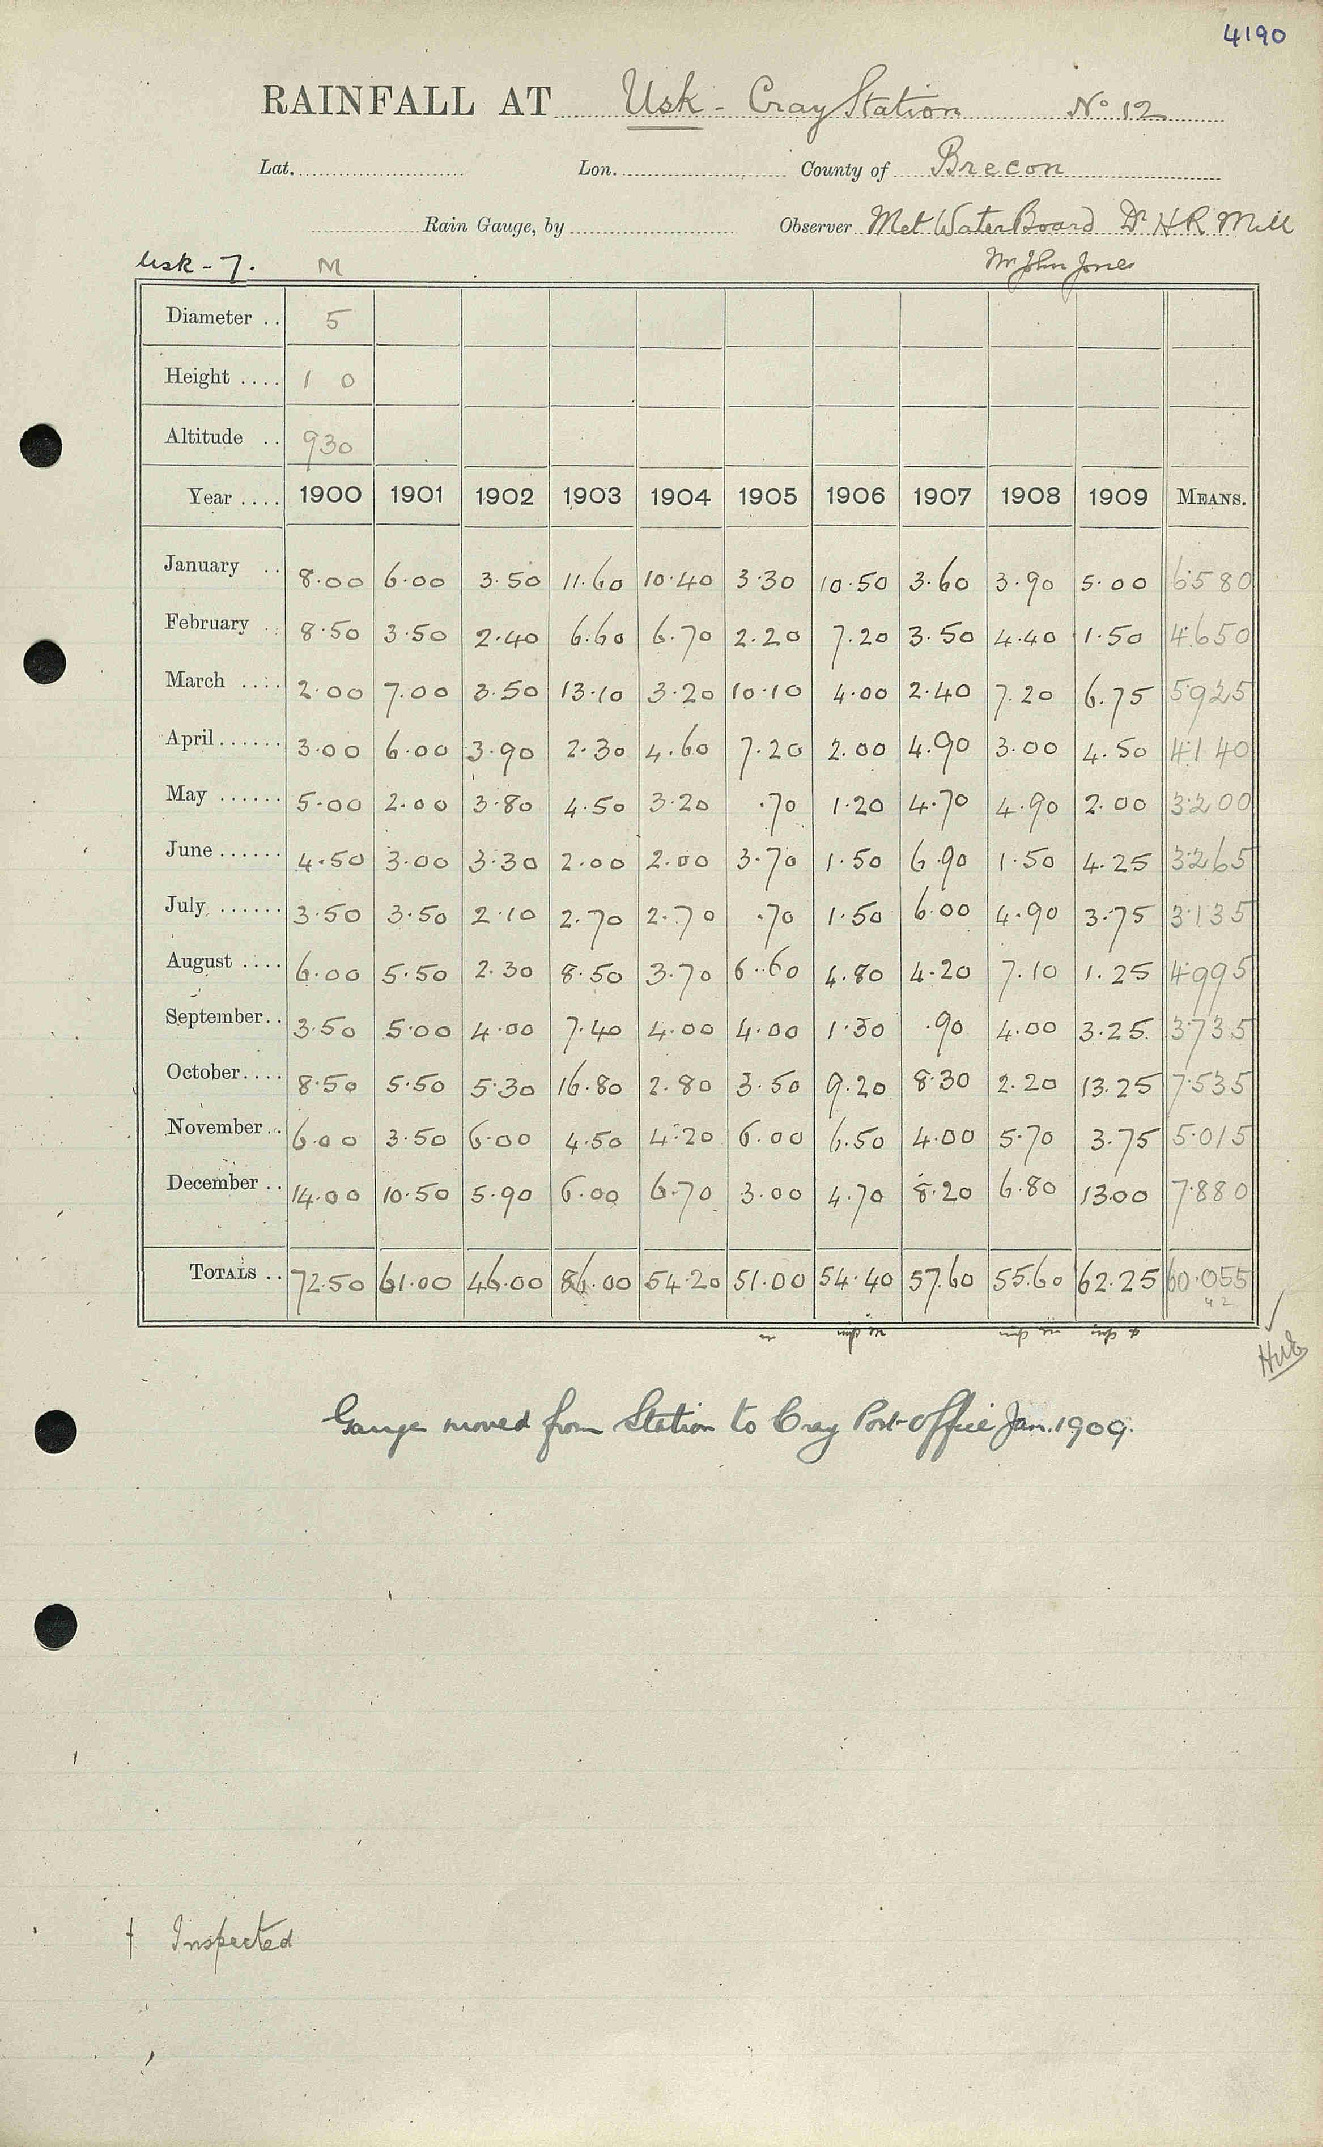 4190
RAINFALL AT Usk - Cray Station No 12
Lat. Lon. County of Brecon
Rain Gauge, by Observer Met Water Board Dr H R Mill
Usk - 7. M Mr John Jones
Diameter .. 5
Height .... 1 0
Altitude .. 930
Year .... 1900 1901 1902 1903 1904 1905 1906 1907 1908 1909 MEANS.
January .. 8.00 6.00 3.50 11.60 10.40 3.30 10.50 3.60 3.90 5.00 6.580
February .. 8.50 3.50 2.40 6.60 6.70 2.20 7.20 3.50 4.40 1.50 4.650
March .... 2.00 7.00 3.50 13.10 3.20 10.10 4.00 2.40 7.20 6.75 5.925
April ...... 3.00 6.00 3.90 2.30 4.60 7.20 2.00 4.90 3.00 4.50 4.140
May ...... 5.00 2.00 3.80 4.50 3.20 .70 1.20 4.70 4.90 2.00 3.200
June ...... 4.50 3.00 3.30 2.00 2.00 3.70 1.50 6.90 1.50 4.25 3.265
July ...... 3.50 3.50 2.10 2.70 2.70 .70 1.50 6.00 4.90 3.75 3.135
August .... 6.00 5.50 2.30 8.50 3.70 6.60 4.80 4.20 7.10 1.25 4.995
September .. 3.50 5.00 4.00 7.40 4.00 4.00 1.30 .90 4.00 3.25 3.735
October .... 8.50 5.50 5.30 16.80 2.80 3.50 9.20 8.30 2.20 13.25 7.535
November .. 6.00 3.50 6.00 4.50 4.20 6.00 6.50 4.00 5.70 3.75 5.015
December .. 14.00 10.50 5.90 6.00 6.70 3.00 4.70 8.20 6.80 13.00 7.880
TOTALS .. 72.50 61.00 46.00 86.00 54.20 51.00 54.40 57.60 55.60 62.25 60.055
42
Gauge moved from Station to Cray Post-office Jan. 1909.
† Inspected